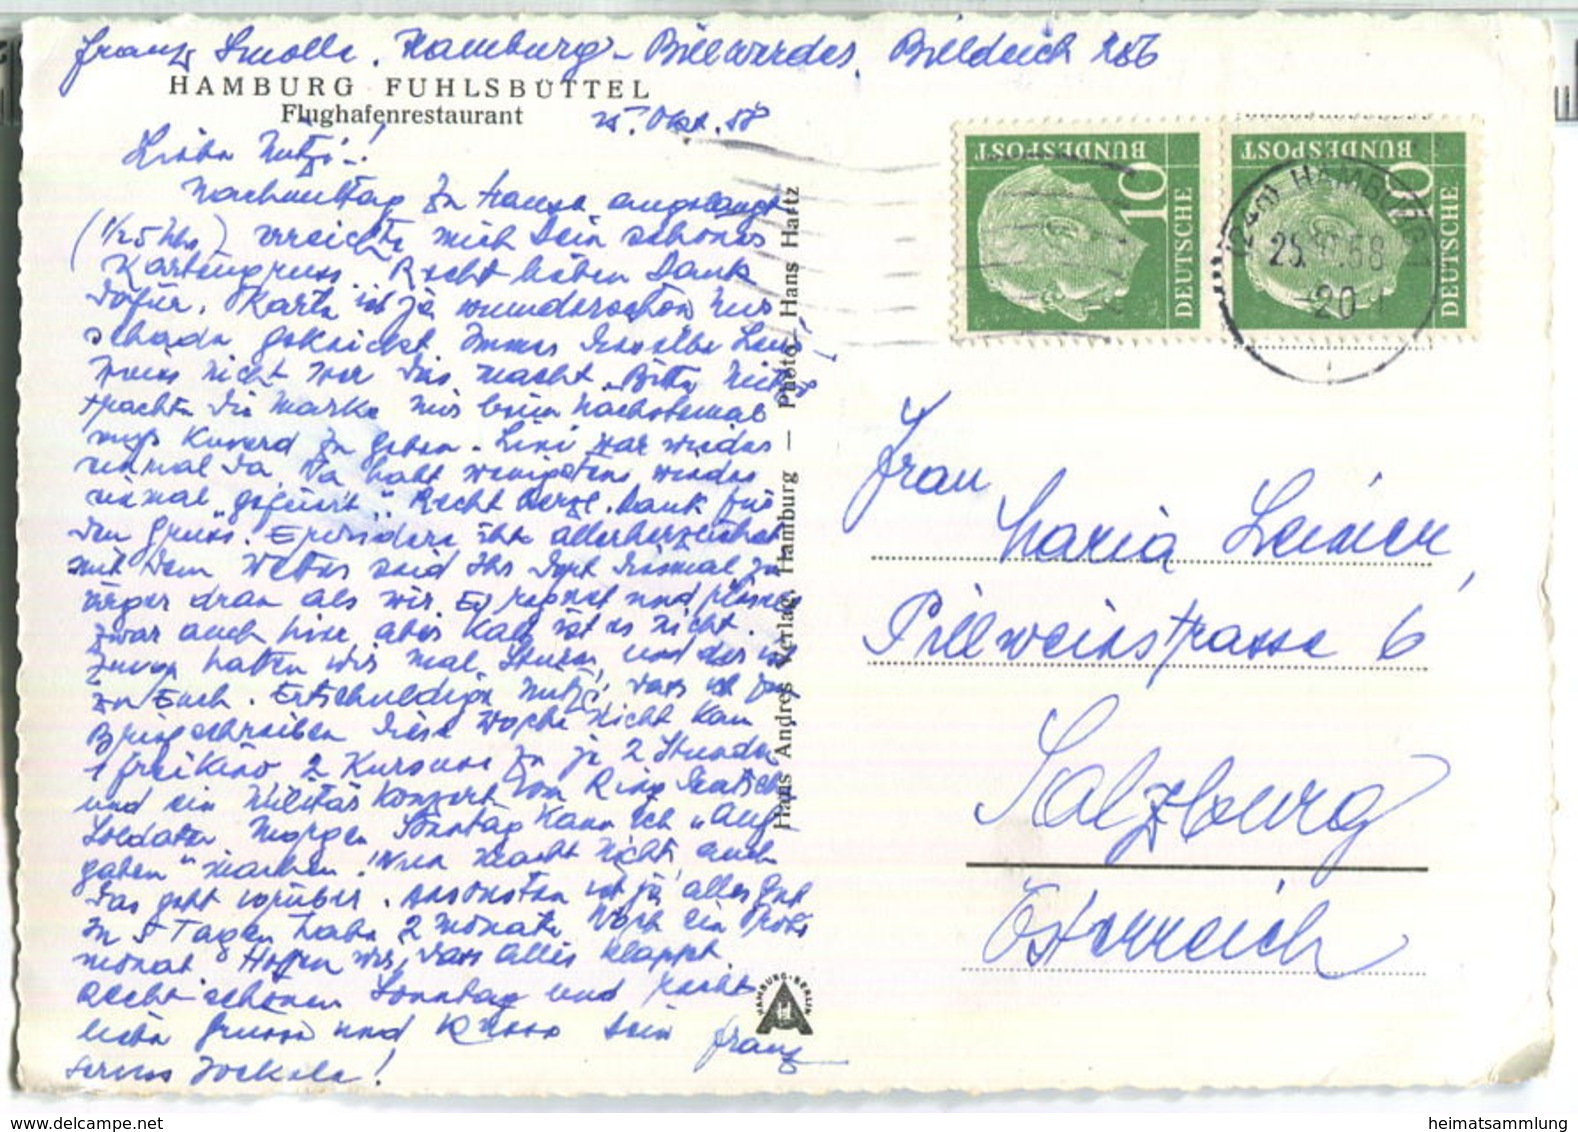 Franz Smolle, Hamburg-Billwerder, Billdeich 256
HAMBURG FUHLSBÜTTEL
Flughafenrestaurant
25. Okt. 58
Liebe Mutzi!
Nachmittag zu Hause angelangt
(1/2 5 Uhr) erreichte mich Dein schönes
Kartengruss. Recht lieben Dank
dafür. Karte ist ja wunderschön nur
schade geknickt. Immer
weiss nicht wer das macht. Bitte Mutzi
trachte die Marke mir beim nächstemal
ins Kuverd zu geben. Lini war wieder
einmal da. Da habt wenigstens wieder
einmal „gefeiert“. Recht herzl. Dank für
den Gruss. Erwidere ihn allerherzlichst
mit dem Wetter seid Ihr dort diesmal
ärger dran als wir. Es regnet und
zwar auch hier, aber kalt ist es nicht.
hatten wir mal Sturm, und der
zu Euch. Entschuldige Mutzi, dass ich zum
Briefschreiben diese Woche nicht kam
1 Freikino, 2 Kurse zu je 2 Stunden
und ein Militärkonzert vom Ring deutscher
Soldaten. Morgen Sonntag kann ich „Auf-
gaben“ machen! Nun macht nichts, auch
das geht vorüber. Ansonsten ist ja alles gut
In 5 Tagen habe 2 Monate. Noch ein Probe
monat. Hoffen wir, dass alles klappt.
Recht schönen Sonntag und recht
liebe Grüsse und Küsse Dein Franz
Servus
Hans Andres Verlag, Hamburg — Photo Hans Hartz
HAMBURG-BERLIN
A
DEUTSCHE
BUNDESPOST
10
DEUTSCHE
BUNDESPOST
10
(24a) HAMBURG 1
25.10.58
-20
Frau
Maria Leiner
Pillweinstrasse 6
Salzburg
Österreich
heimatsammlung
delcampe.net